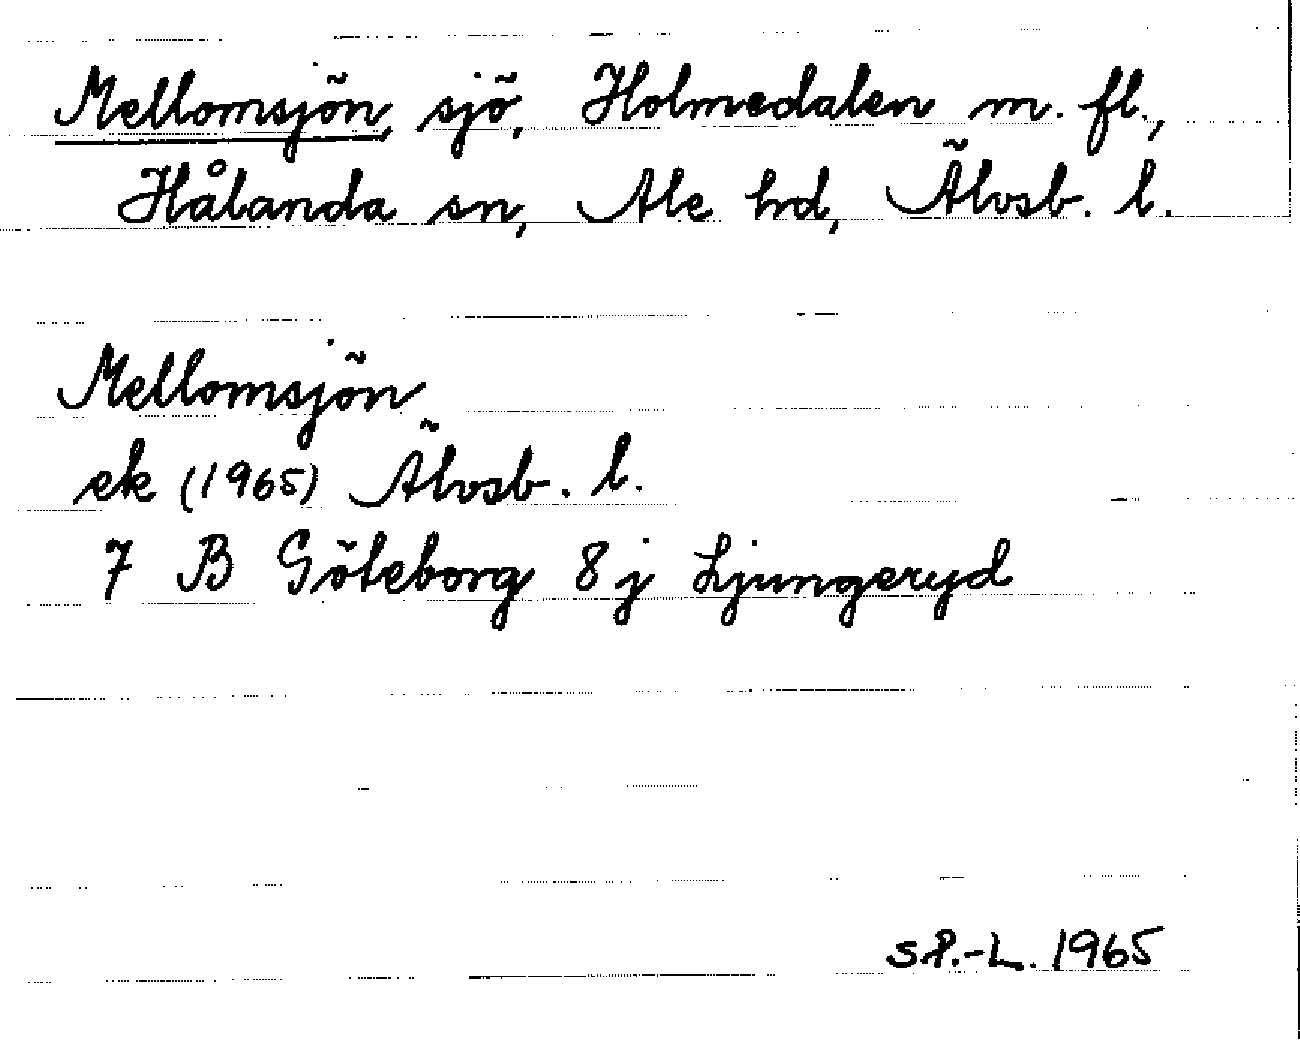 Mellomsjön, sjö, Holmedalen m. fl.,
Hålanda sn, Ale hd, Älvsb. l.
Mellomsjön
ek (1965) Älvsb. l.
7 B Göteborg 8 j Ljungeryd
SP.-L. 1965